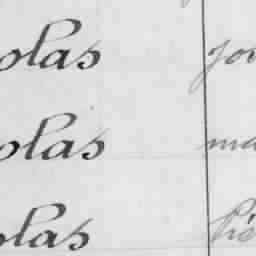 olas jou
olas ma
olas